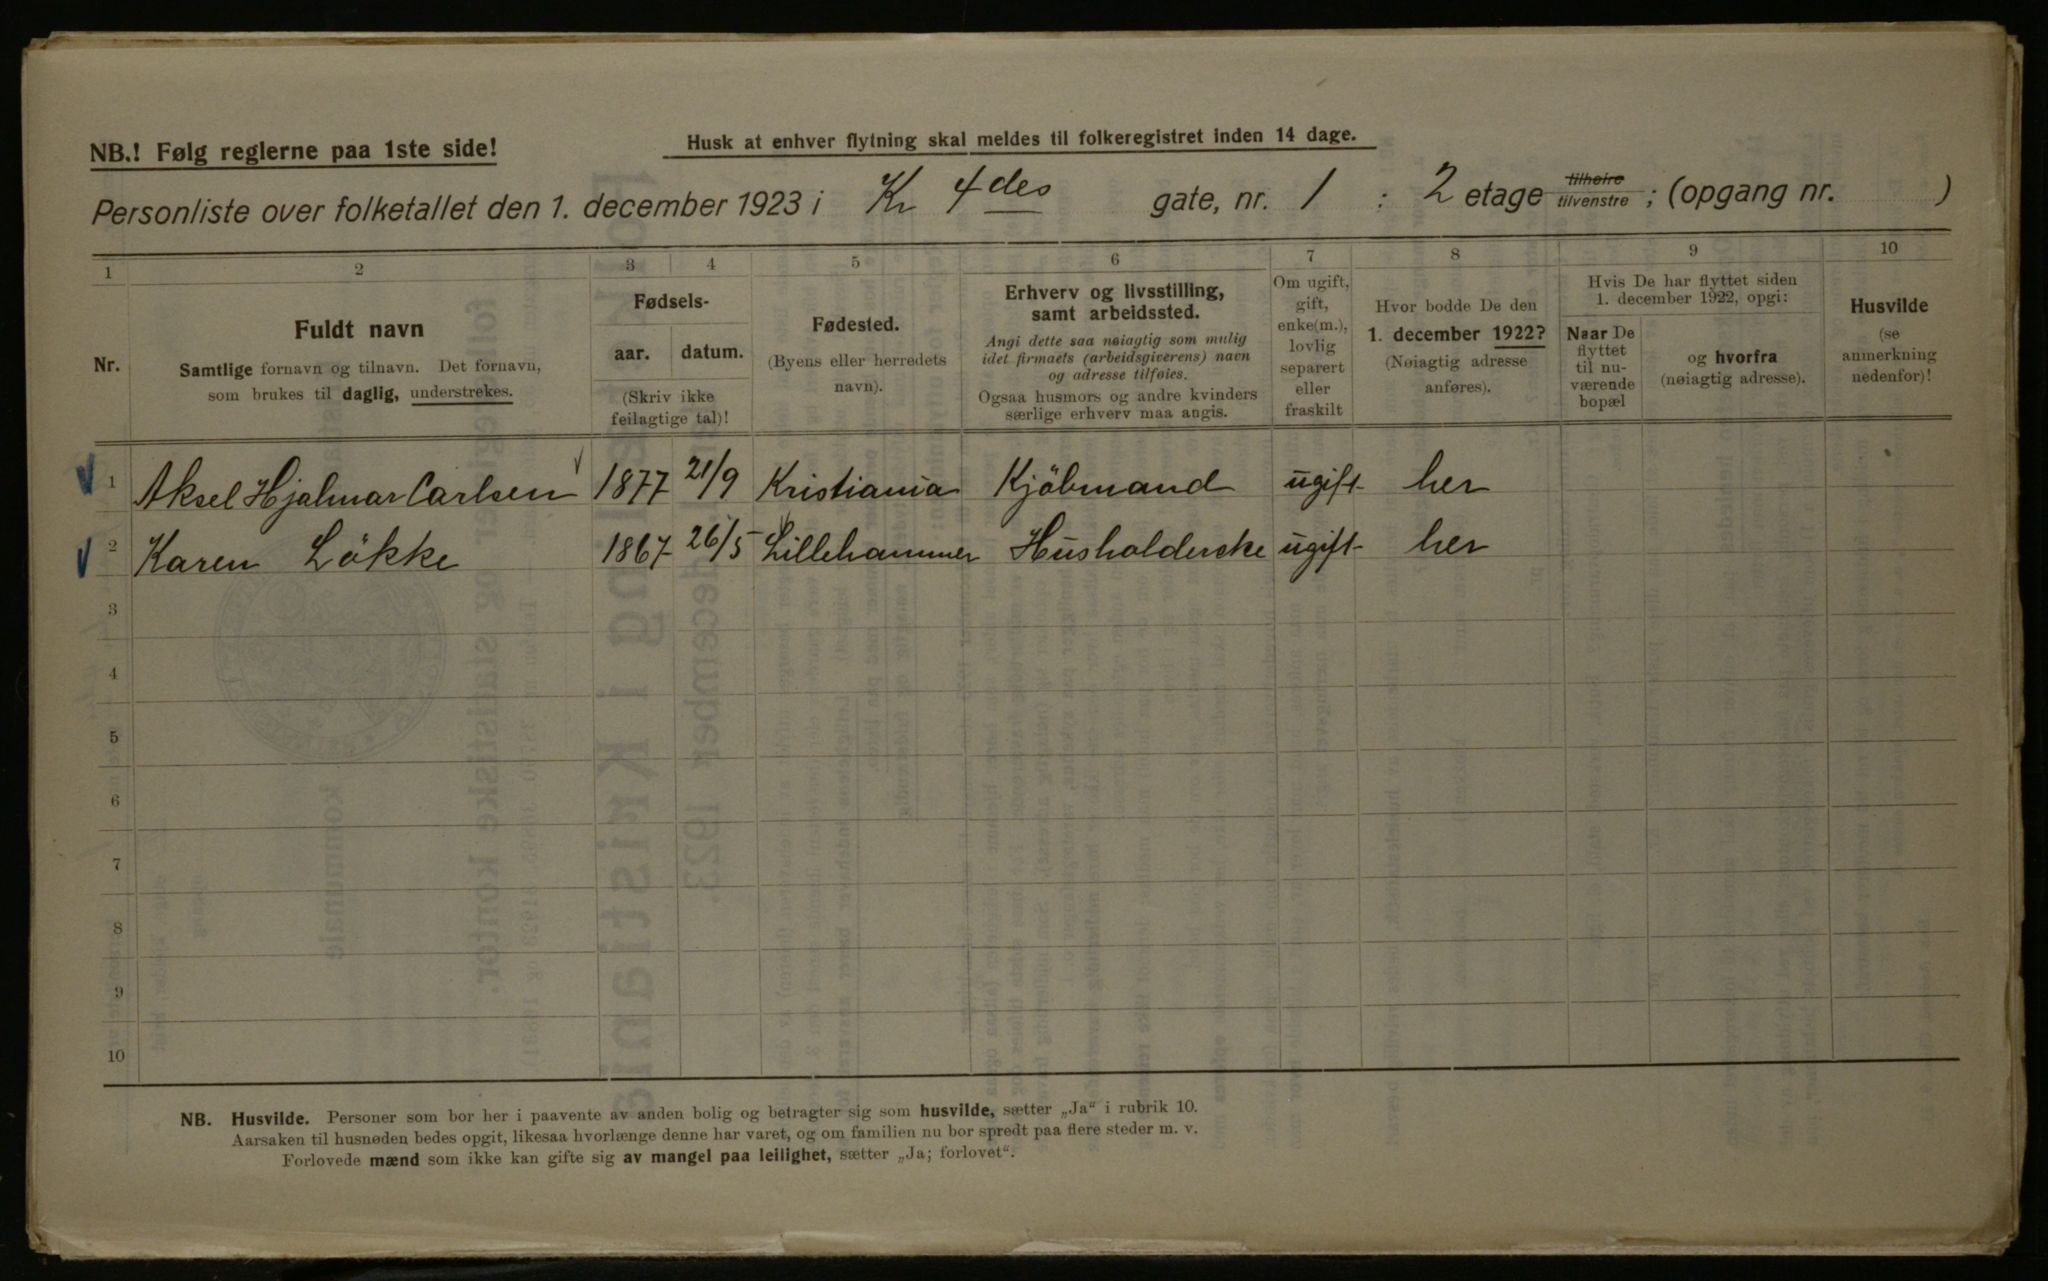 NB.! Følg reglerne paa 1ste side!
Husk at enhver flytning skal meldes til folkeregistret inden 14 dage.
Personliste over folketallet den 1. december 1923 i Kr 4des gate, nr. 1 : 2 etage tilhøire tilvenstre ; (opgang nr. )
1 2 3 4 5 6 7 8 9 10
Nr.
Fuldt navn
Samtlige fornavn og tilnavn. Det fornavn,
som brukes til daglig, understrekes.
Fødsels-
aar. datum.
(Skriv ikke
feilagtige tal)!
Fødested.
(Byens eller herredets
navn).
Erhverv og livsstilling,
samt arbeidssted.
Angi dette saa nøiagtig som mulig
idet firmaets (arbeidsgiverens) navn
og adresse tilføies.
Ogsaa husmors og andre kvinders
særlige erhverv maa angis.
Om ugift,
gift,
enke(m.),
lovlig
separert
eller
fraskilt
Hvor bodde De den
1. december 1922?
(Nøiagtig adresse
anføres).
Hvis De har flyttet siden
1. december 1922, opgi:
Naar De
flyttet
til nu-
værende
bopæl
og hvorfra
(nøiagtig adresse).
Husvilde
(se
anmerkning
nedenfor)!
1 Aksel Hjalmar Carlsen 1877 21/9 Kristiania Kjöbmand ugift her
2 Karen Lökke 1867 26/5 Lillehammer Husholderske ugift her
3
4
5
6
7
8
9
10
NB. Husvilde. Personer som bor her i paavente av anden bolig og betragter sig som husvilde, sætter „Ja" i rubrik 10.
Aarsaken til husnøden bedes opgit, likesaa hvorlænge denne har varet, og om familien nu bor spredt paa flere steder m. v.
Forlovede mænd som ikke kan gifte sig av mangel paa leilighet, sætter „Ja; forlovet".